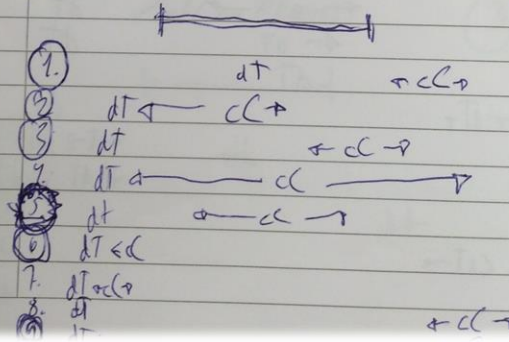 1. dt ←cC→
2 dT ← cC →
3 dt ← cC →
4. dT ← cC →
5. dt ← cC →
6 dT ← cC
7. dT ←C→
8. dt
9 dT ← cC →